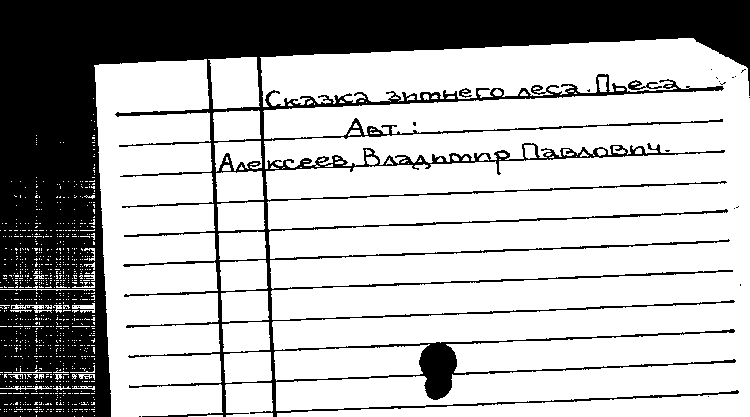 Сказка зимнего леса. Пьеса.
Авт. :
Алексеев, Владимир Павлович.